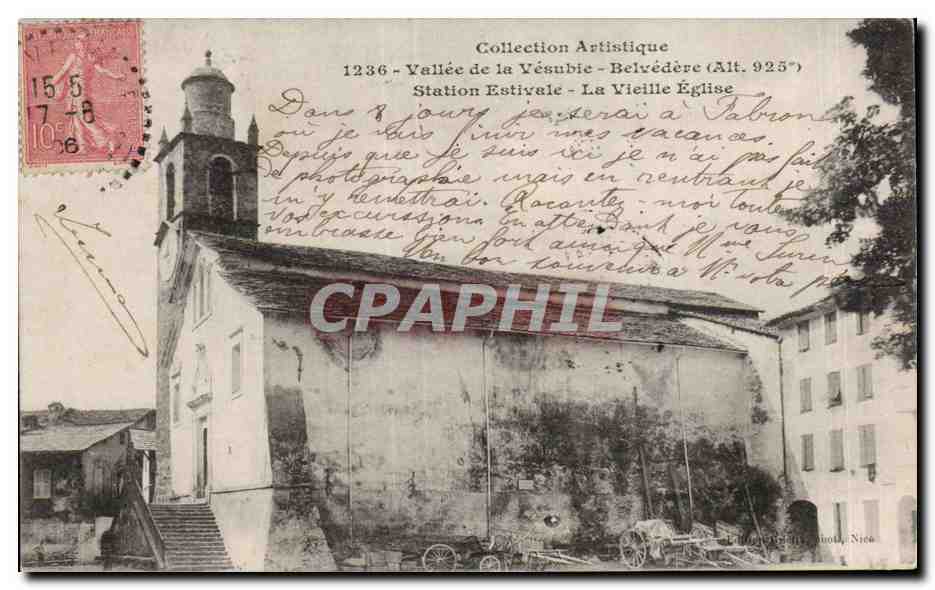 Collection Artistique
1236 - Vallée de la Vésubie - Belvédère (Alt. 925ᵐ)
Station Estivale - La Vieille Église
15-5
17-8
06
10c
Dans 8 jours je serai à
où je vais finir mes vacances.
Depuis que je suis ici je n'ai pas fait
de photographie mais en rentrant je
m'y remettrai. Racontez-moi toutes
vos excursions. En attendant je vous
embrasse bien fort ainsi que Mme
bon souvenir à Mr votre père
CPAPHIL
phot. Nice